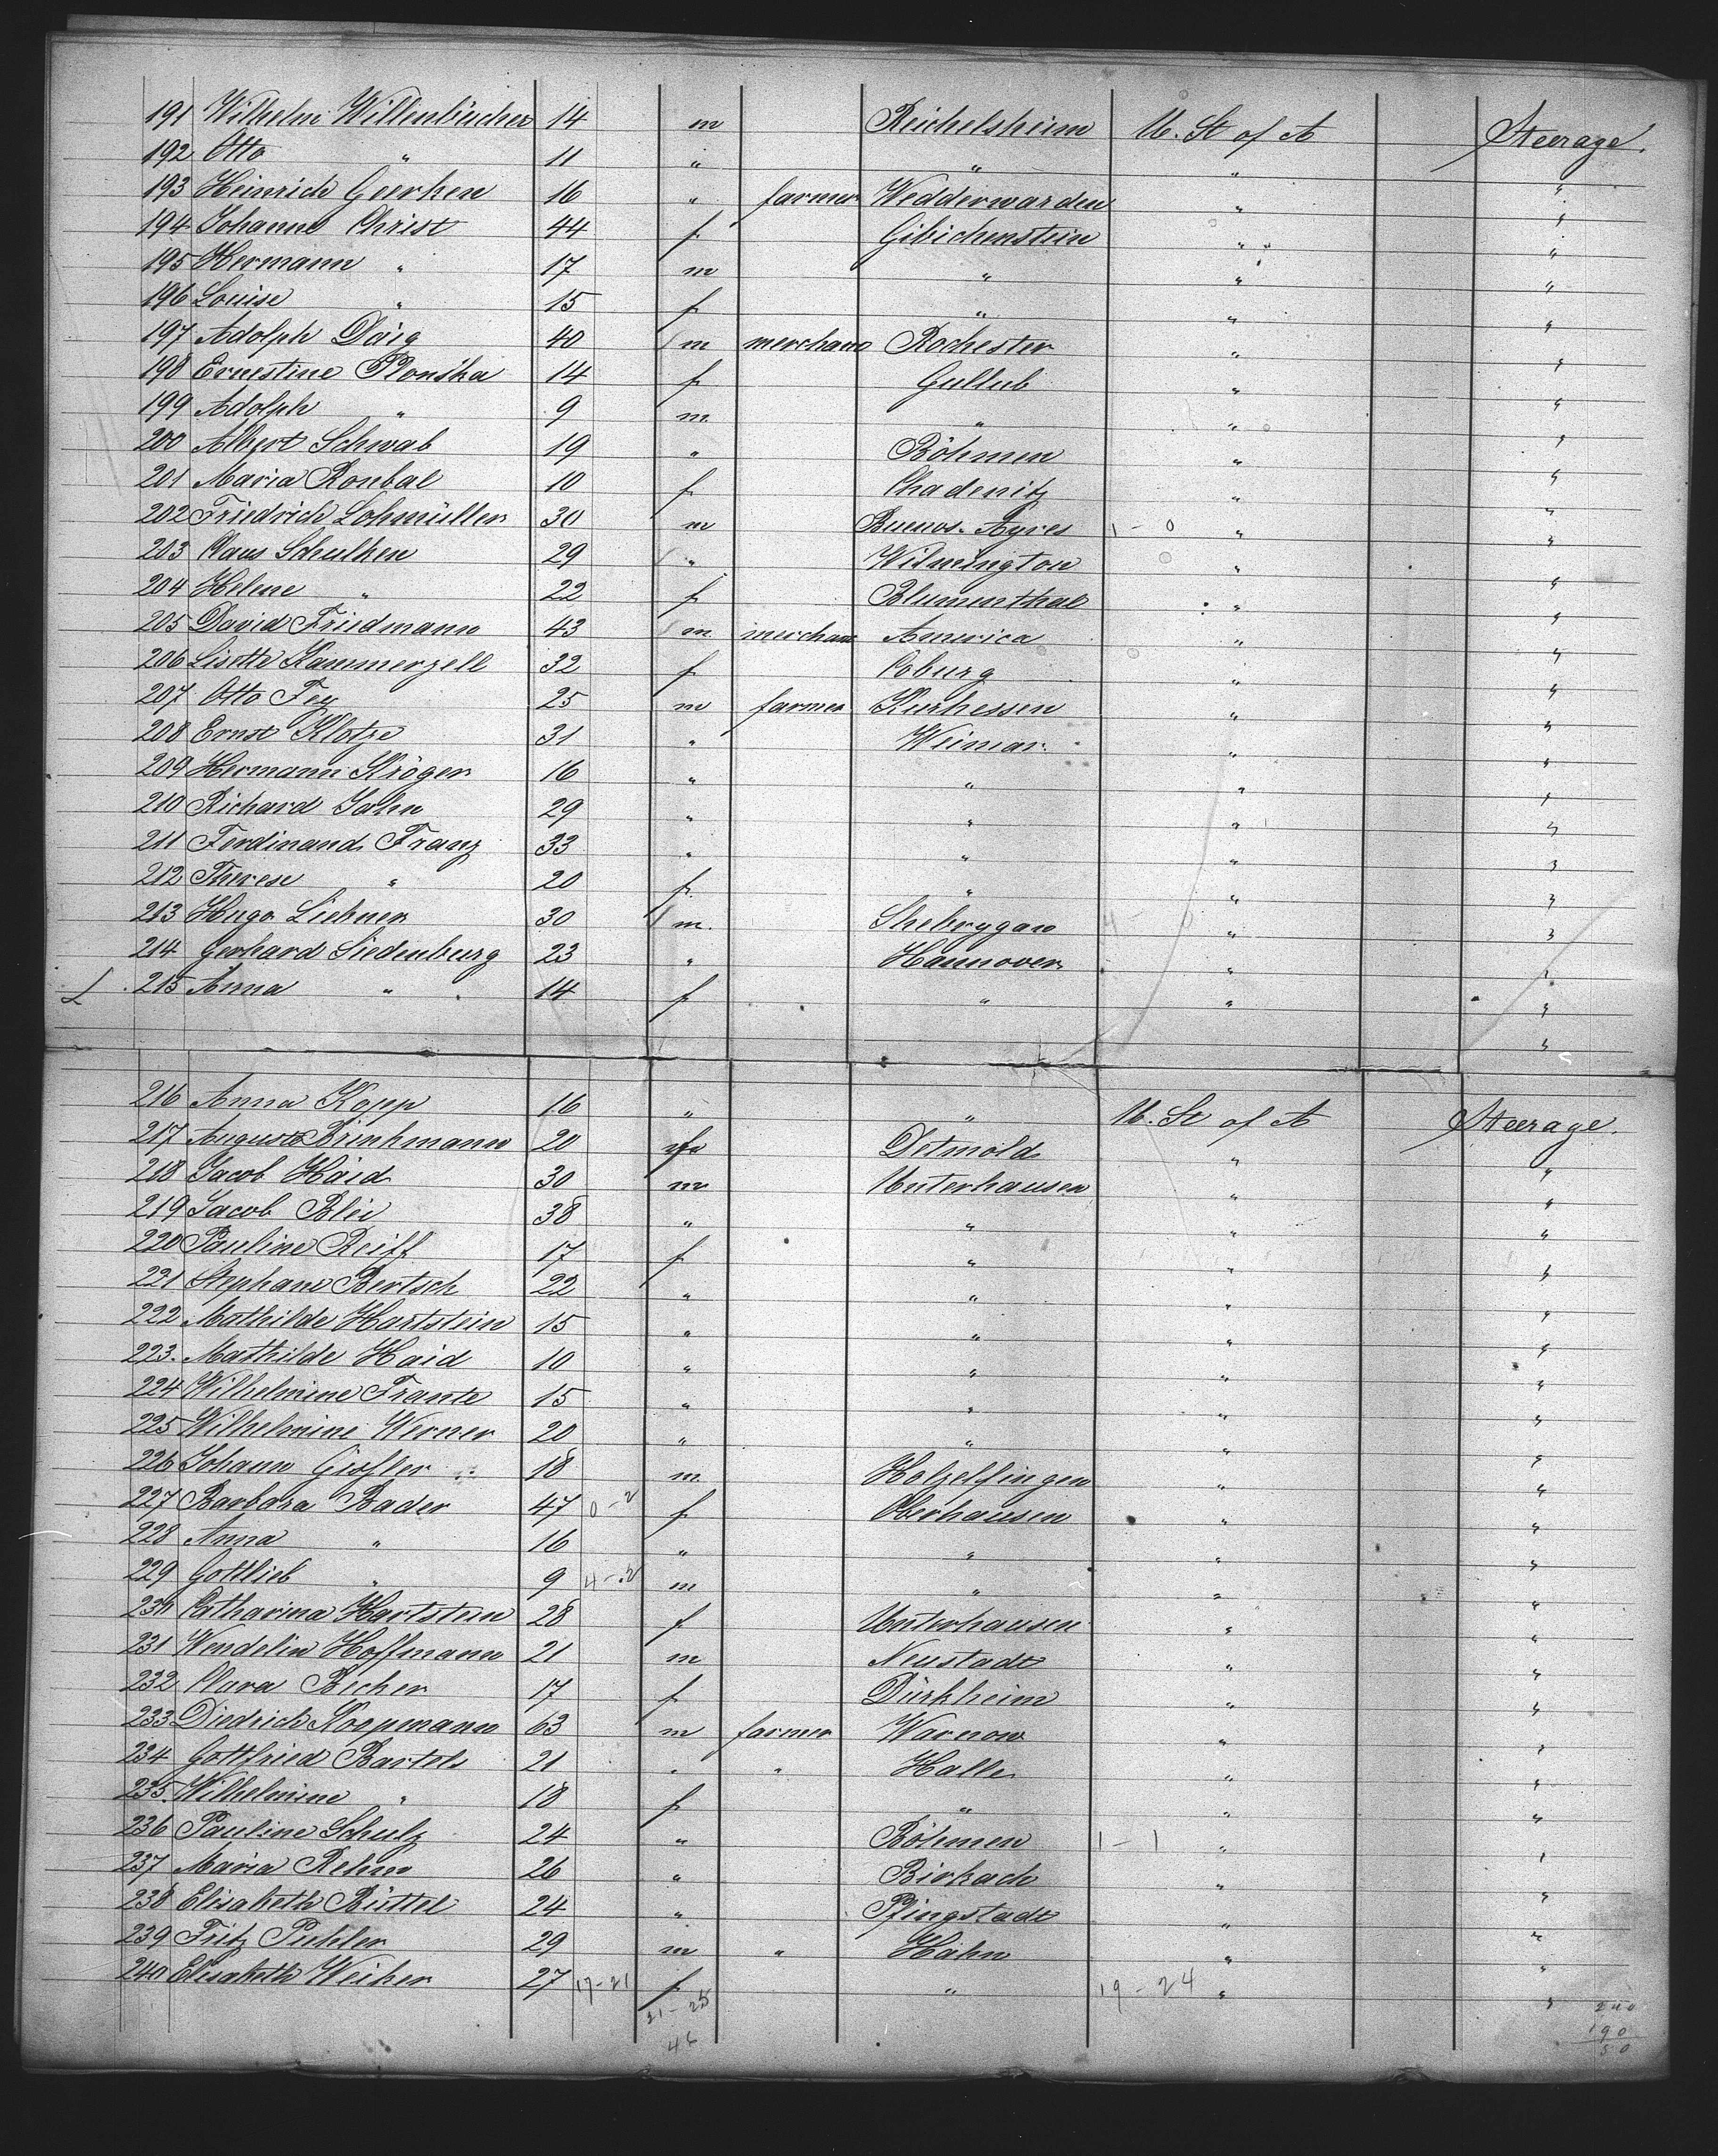 191 Wilhelm Willenbücher 14 m Reichelsheim U. St of A Steerage.
192 Otto " 11 " " " "
193 Heinrich Geerken 16 " farmer Wedderwarden " "
194 Johanne Christ 44 f Gibichenstein " "
195 Hermann " 17 m " " "
196 Louise " 15 f " " "
197 Adolph 40 m merchant Rochester " "
198 Ernestine Plonska 14 f Gullub " "
199 Adolph " 9 m " " "
200 Albert Schwab 19 " Böhmen " "
201 Maria Roubal 10 f Chadenitz " "
202 Friedrich Lohmüller 30 m Buenos-Ayres 1 - 0 " "
203 Claus Schulken 29 " Wilmington " "
204 Helene " 22 f Blumenthal " "
205 David Friedmann 43 m merchant America " "
206 Lisette Kammerzell 32 f Coburg " "
207 Otto Fey 25 m farmer Kurhessen " "
208 Ernst Klotze 31 " Weimar " "
209 Hermann Kröger 16 " " " "
210 Richard Jahn 29 " " " "
211 Ferdinand Franz 33 " " " "
212 Therese " 20 f " " "
213 Hugo Liehner 30 m. Shebrygan 4 - 0 " "
214 Gerhard Siedenburg 23 " Hannover " "
L 215 Anna " 14 f " " "
216 Anna Kopp 16 " " U. St of A Steerage.
217 August Brinkmann 20 m Detmold " "
218 Jacob Haid 30 m Unterhausen " "
219 Jacob Blei 38 " " " "
220 Pauline Reiff 17 f " " "
221 Stephane Bertsch 22 " " " "
222 Mathilde Hartstein 15 " " " "
223. Mathilde Haid 10 " " " "
224 Wilhelmine Frante 15 " " " "
225 Wilhelmine Werner 20 " " " "
226 Johann 18 m Holzelfingen " "
227 Barbara Bader 47 0 - 2 f Oberhausen " "
228 Anna " 16 " " " "
229 Gottlieb " 9 4 - 2 m " " "
230 Catharina Hartstein 28 f Unterhausen " "
231 Wendelin Hoffmann 21 m Neustadt " "
232 Clara Becker 17 f Dürkheim " "
233 Diedrich Koopmann 63 m farmer Warnow " "
234 Gottfried Bartels 21 " " Halle " "
235. Wilhelmine " 18 f " " "
236 Pauline Schulz 24 " Böhmen 1 - 1 " "
237 Maria Rehm 26 " Birkach " "
238 Elisabeth Büttel 24 " Pfingstadt " "
239 Fritz Puhler 29 m " Hahn " "
240 Elisabeth Weiker 27 17-21 f " 19 - 24 " "
21 - 25 240
46 190
50